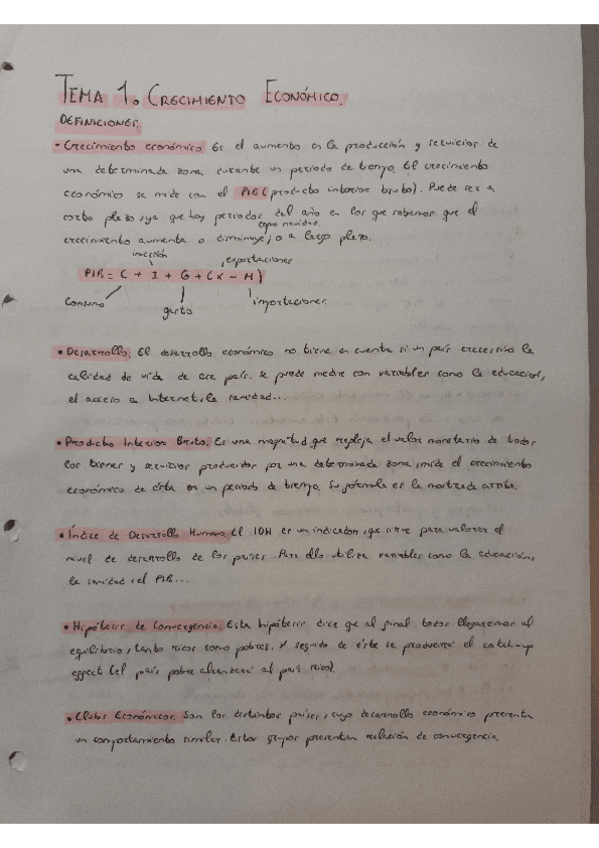 TEMA 1. CRECIMIENTO ECONÓMICO.
DEFINICIONES.
• Crecimiento económico. Es el aumento en la producción y servicios de
una determinada zona durante un periodo de tiempo. El crecimiento
económico se mide con el PIB (producto interior bruto). Puede ser a
corto plazo, ya que hay periodos del año en los que sabemos que el
como navidad
crecimiento aumenta o disminuye, o a largo plazo.
inversión
exportaciones
PIB = C + I + G + (X - M)
Consumo
gasto
importaciones
• Desarrollo. El desarrollo económico no tiene en cuenta si un país crece, sino la
calidad de vida de ese país. Se puede medir con variables como la educación,
el acceso a Internet, la sanidad...
• Producto Interior Bruto. Es una magnitud que refleja el valor monetario de todos
los bienes y servicios producidos por una determinada zona, mide el crecimiento
económico de ésta en un periodo de tiempo. Su fórmula es la mostrada arriba.
• Índice de Desarrollo Humano. El IDH es un indicador, que sirve para valorar el
nivel de desarrollo de los países. Para ello utiliza variables como la educación,
la sanidad, el PIB...
• Hipótesis de Convergencia. Esta hipótesis dice que al final todos llegaremos al
equilibrio, tanto ricos como pobres. Y seguido de éste se producirá el catch-up
effect (el país pobre alcanzará al país rico).
• Clubs Económicos. Son los distintos países, cuyo desarrollo económico presenta
un comportamiento similar. Estos grupos presentan relación de convergencia.